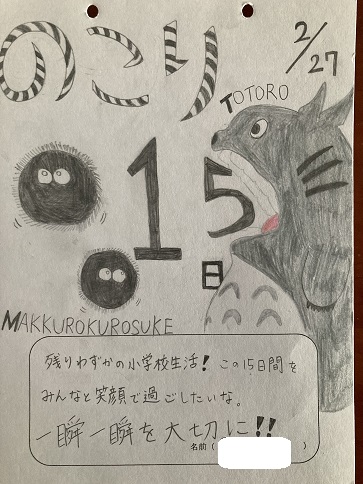 のこり
2/27
TOTORO
15
日
MAKKUROKUROSUKE
残りわずかの小学校生活! この15日間を
みんなと笑顔で過ごしたいな。
一瞬一瞬を大切に!!
名前( )